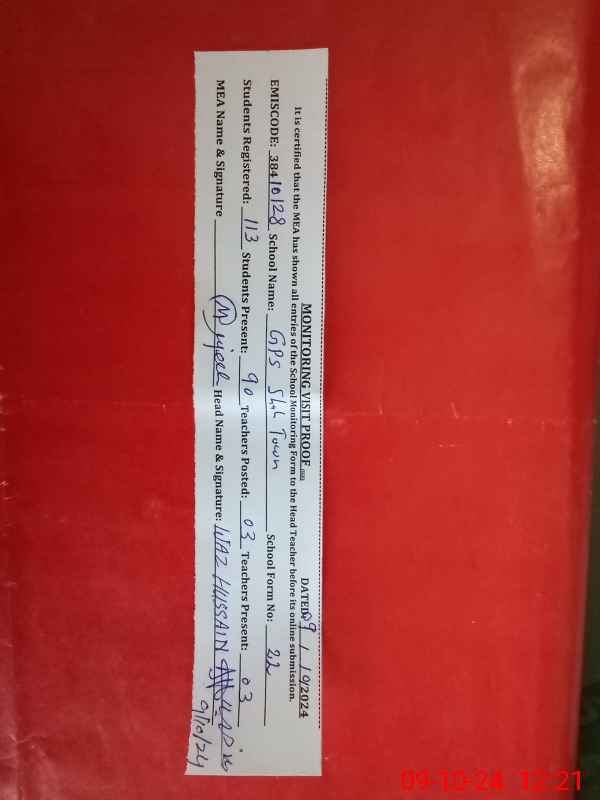 MONITORING VISIT PROOF DATED 09/10/2024
It is certified that the MEA has shown all entries of the School Monitoring Form to the Head Teacher before its online submission.
EMISCODE: 38410128 School Name: GPS Shah Town School Form No: 22
Students Registered: 113 Students Present: 90 Teachers Posted: 03 Teachers Present: 03
MEA Name & Signature Head Name & Signature: HUSSAIN
9/10/24
09-10-24 12:21